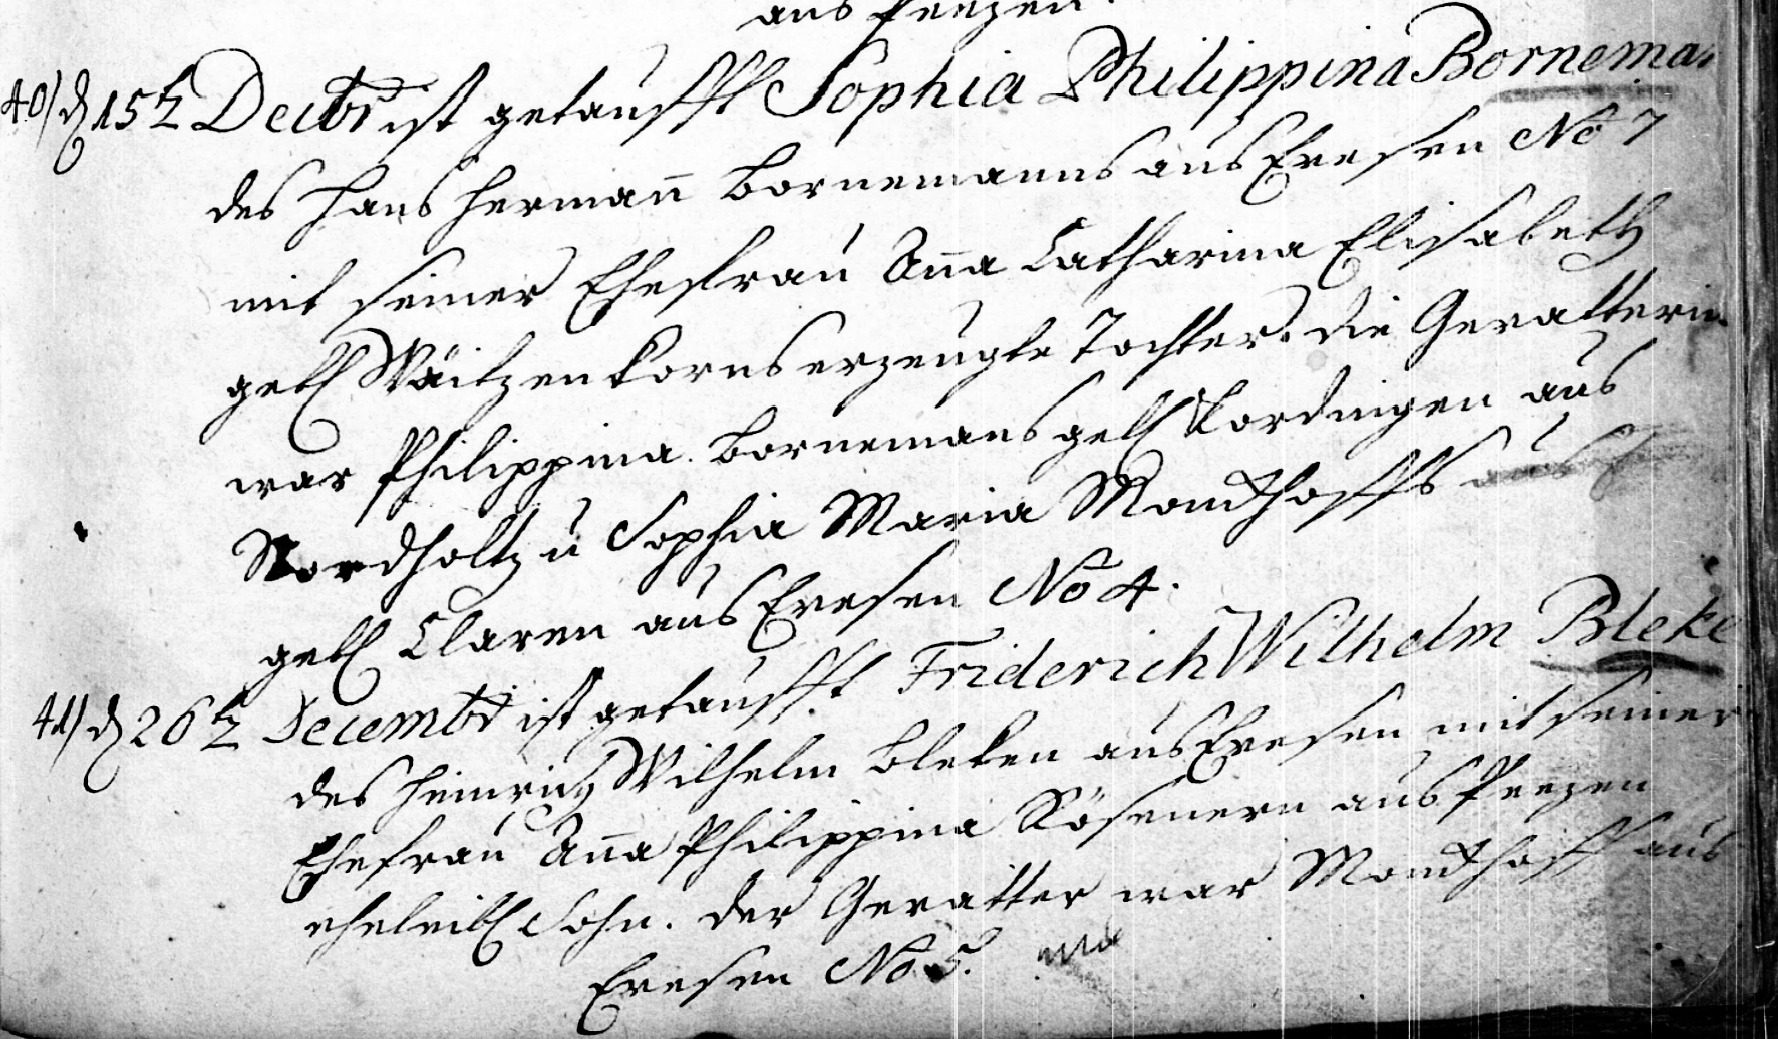 aus Peezen.
40) d 15t Decbr ist getaufft Sophia Philippina Bornema
des Hans Herman̄ Bornemanns aus Evesen No 7
mit seiner Ehefrau An̄a Catharina Elisabeth
geb Waitzenkorns erzeugte Tochter. die Gevatterin
war Philippina Bornemans geb Kordingen aus
Nordholtz u Sophia Maria Mondthoffs aus
geb Claren aus Evesen No 4.
41) d 26t Decembr ist getaufft Friderich Wilhelm Bleke
des Heinrich Wilhelm Bleken aus Evesen mit seiner
Ehefrau An̄a Philippina Rösenern aus Peezen
ehelich Sohn. der Gevatter war Mondthoff aus
Evesen No 5.